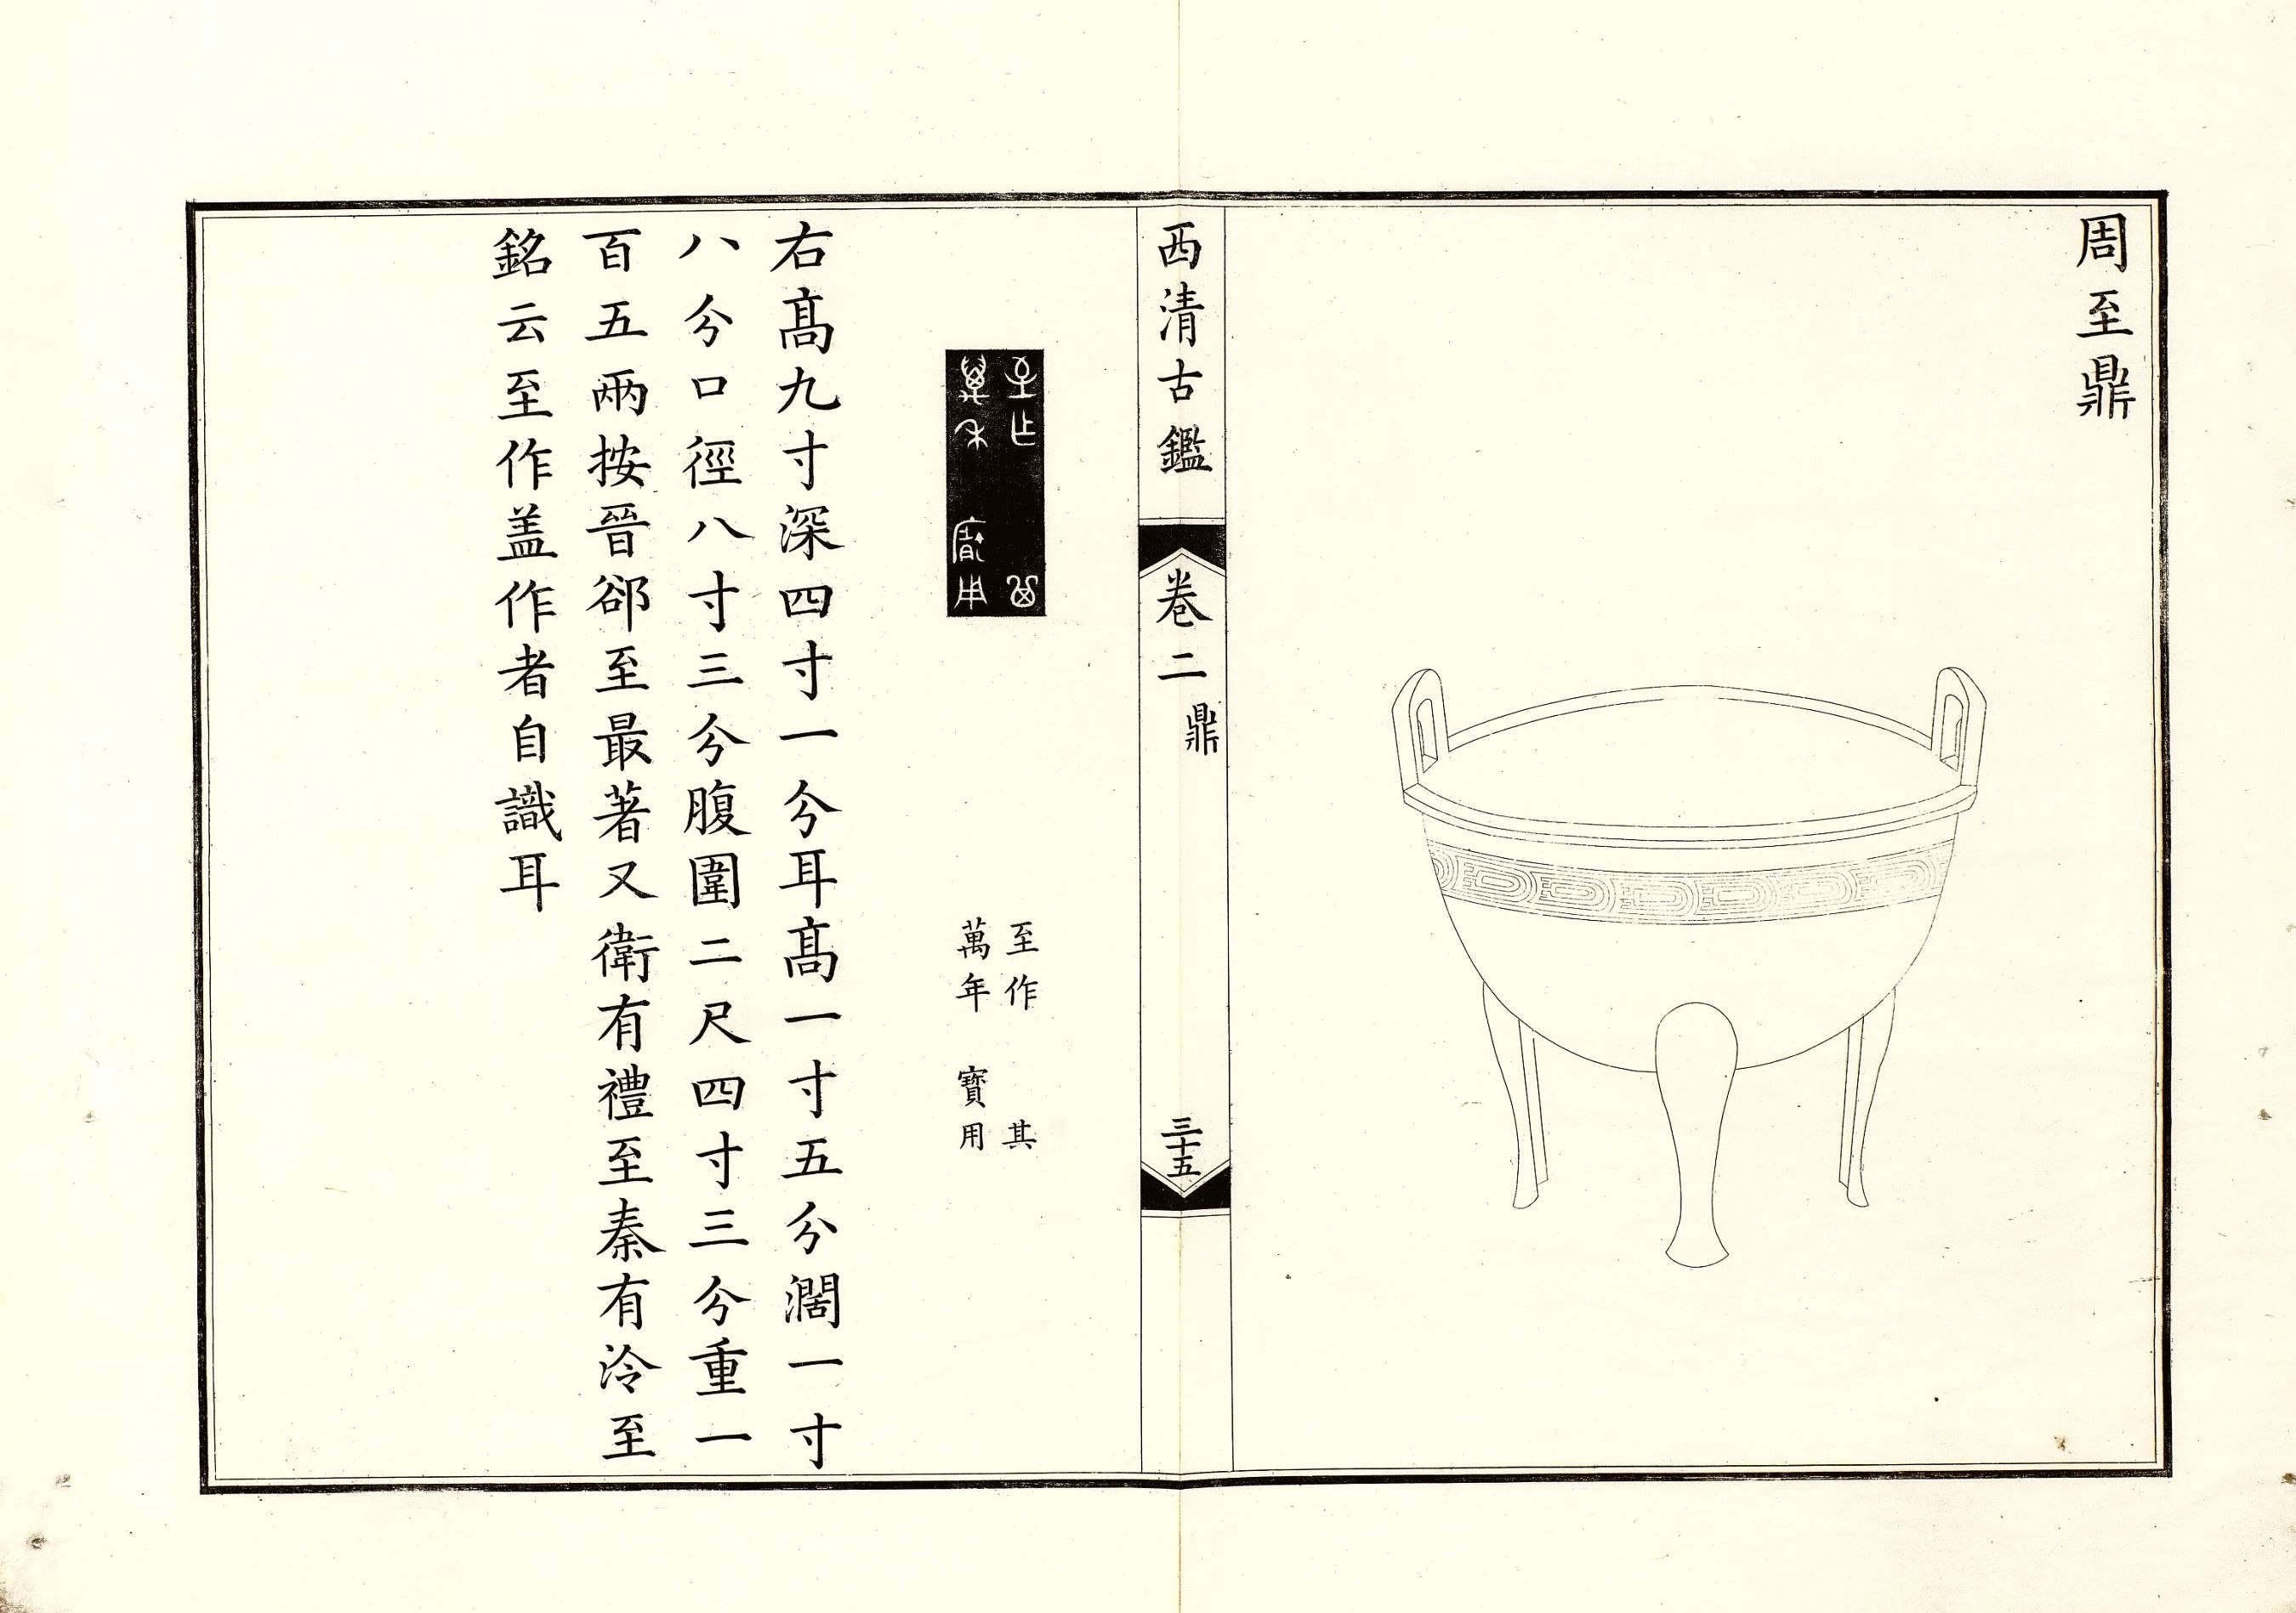 周至鼎
西清古鑑
卷二
鼎
三十五
至作　其
萬年　寳用
右髙九寸深四寸一分耳髙一寸五分濶一寸
八分口徑八寸三分腹圍二尺四寸三分重一
百五兩按晉郤至最著又衛有禮至秦有泠至
銘云至作盖作者自識耳